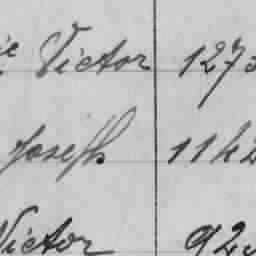 ie Victor 1273
Joseph 1142
Victor 923